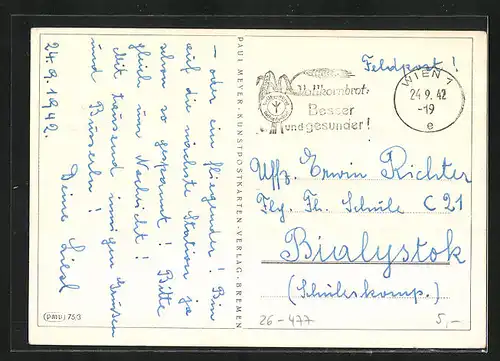 – oder ein fliegender! Bin
auf die nächste Station ja
schon so gespannt! Bitte
gleich um Nachricht!
Mit tausend innigen Grüssen
und Busserln!
Deine Liesl
24.9.1942.
PAUL MEYER · KUNSTPOSTKARTEN-VERLAG · BREMEN
(PMB) 753
Vollkornbrot:
Besser
und gesunder!
WIEN 1
24.9.42
-19
e
Feldpost!
Uffz. Erwin Richter
Flg. Th. Schule C 21
Bialystok
(Schülerkomp.)
26-477
5,-